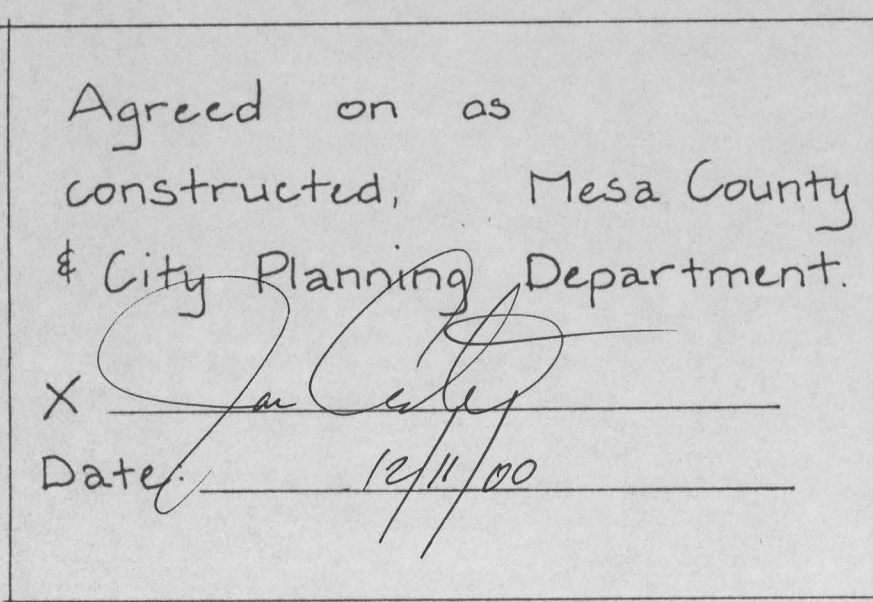 Agreed on as
constructed, Mesa County
& City Planning Department.
X
Date: 12/11/00